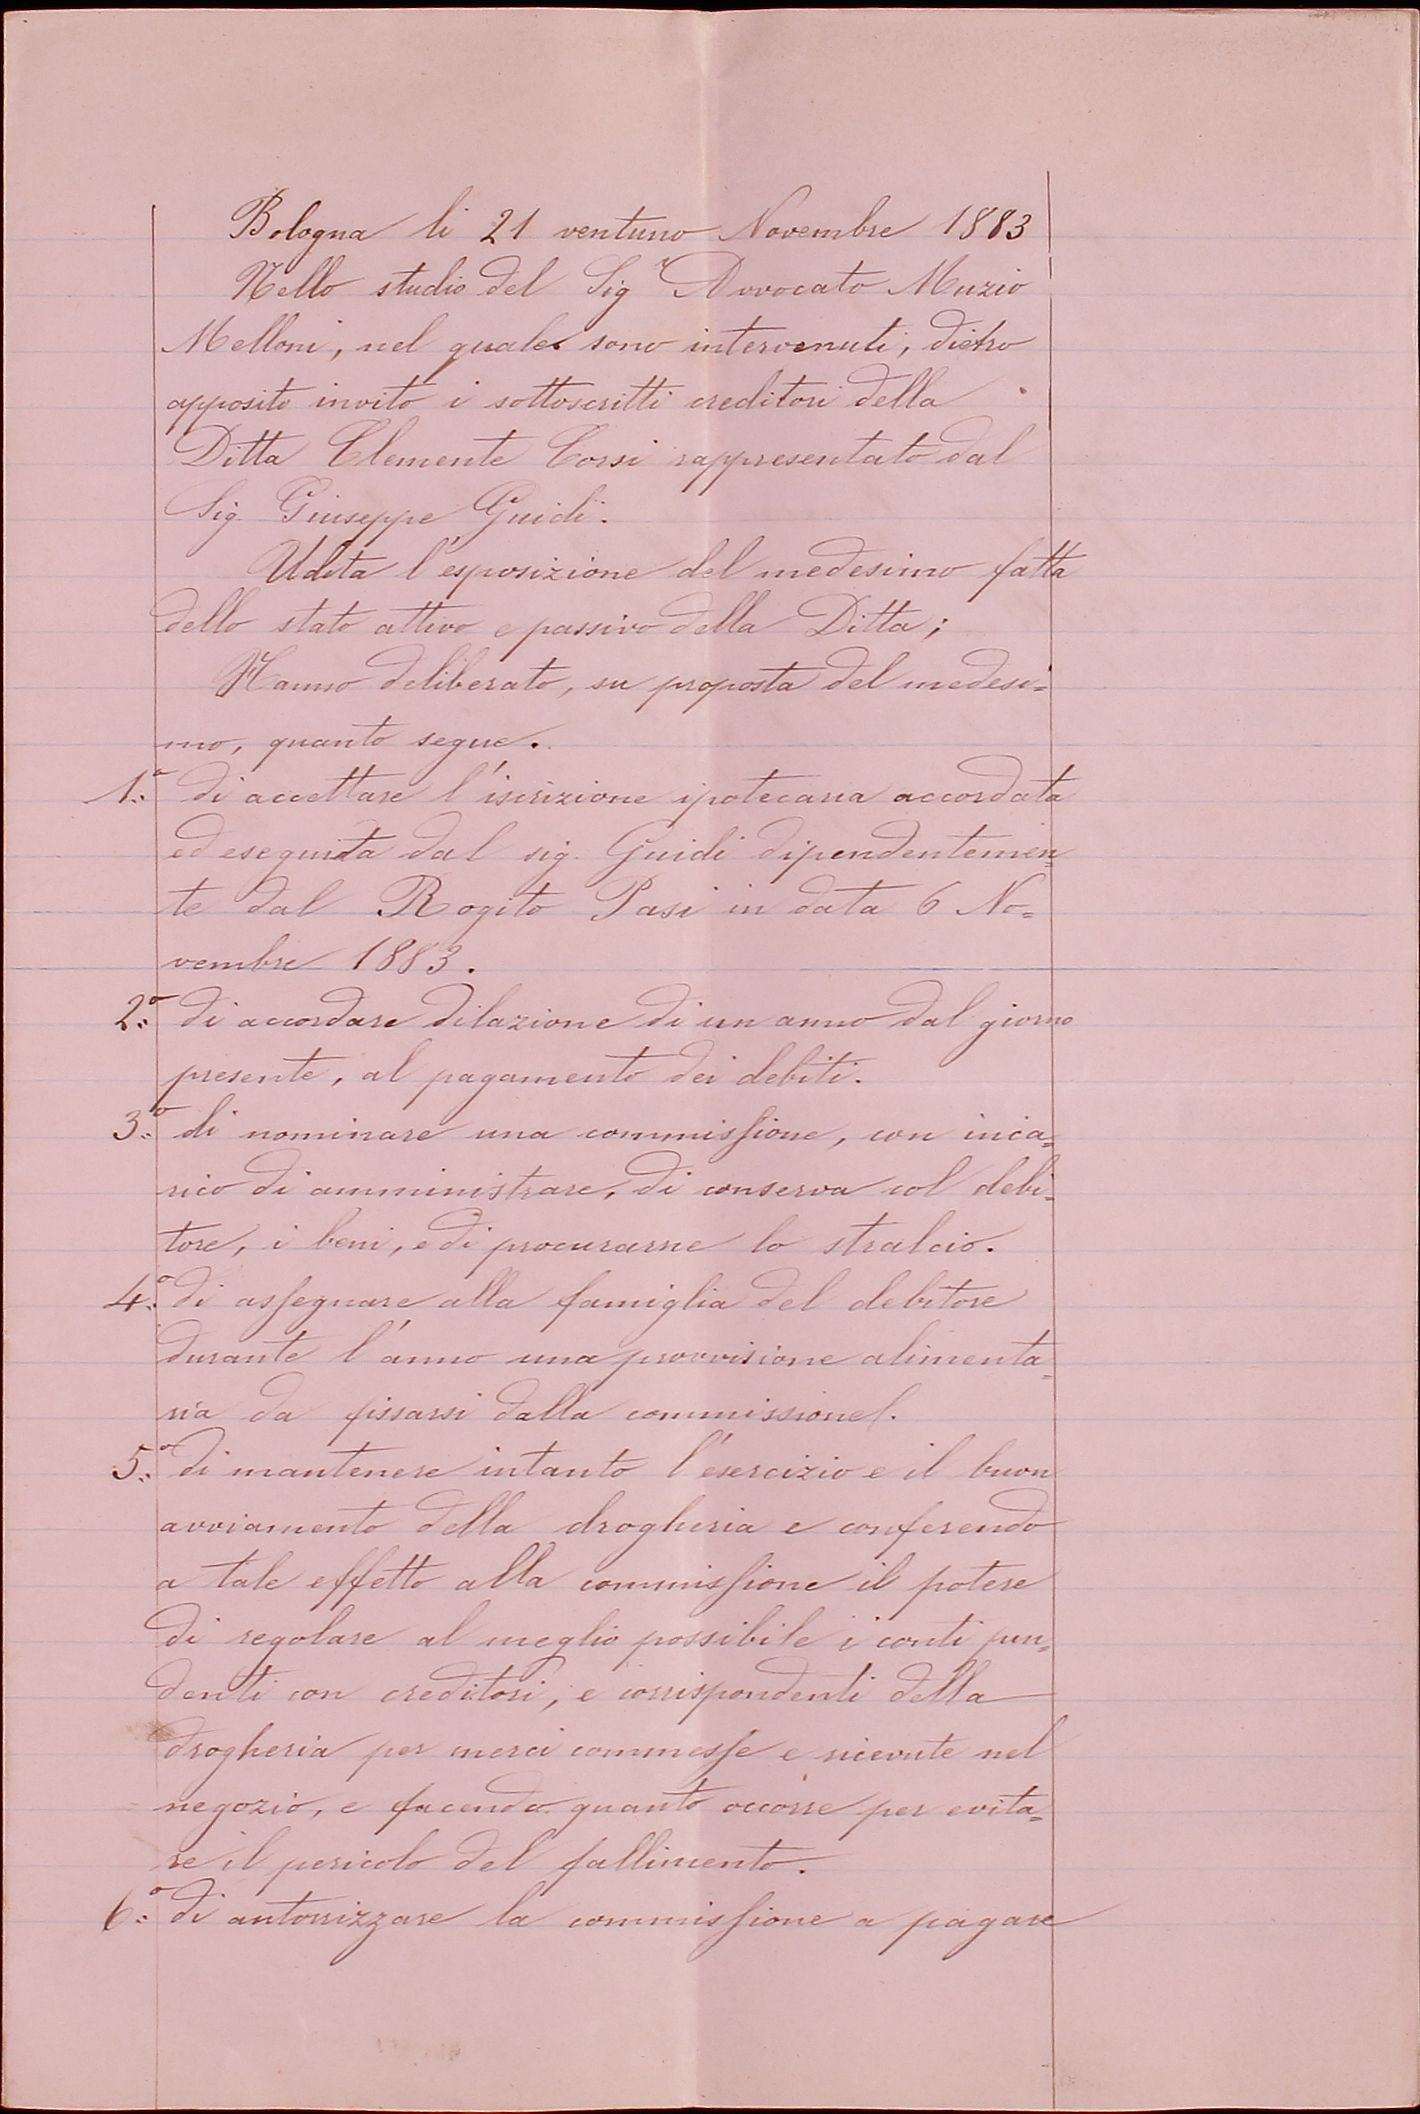 Bologna li 21 ventuno Novembre 1883
Nello studio del Sigr Avvocato Muzio
Melloni, nel quale sono intervenuti, dietro
apposito invito i sottoscritti creditori della
Ditta Clemente Corsi rappresentato dal
Sig. Giuseppe Guidi.
Udita l'esposizione del medesimo fatta
dello stato attivo e passivo della Ditta;
Hanno deliberato, su proposta del medesi=
mo, quanto segue.
1.o di accettare l'iscrizione ipotecaria accordata
ed eseguita dal sig. Guidi dipendentemen=
te dal Rogito Pasi in data 6 No=
vembre 1883.
2.o di accordare dilazione di un anno dal giorno
presente, al pagamento dei debiti.
3.o di nominare una commissione, con inca=
rico di amministrare, di conserva col debi=
tore, i beni, e di procurarne lo stralcio.
4.o di assegnare alla famiglia del debitore
durante l'anno una provvisione alimenta=
ria da fissarsi dalla commissione.
5.o di mantenere intanto l'esercizio e il buon
avviamento della drogheria e conferendo
a tale effetto alla commissione il potere
di regolare al meglio possibile i conti pen=
denti con creditori, e corrispondenti della
drogheria per merci commesse e ricevute nel
negozio, e facendo quanto occorre per evita=
re il pericolo del fallimento.
6.o di autorrizzare la commissione a pagare